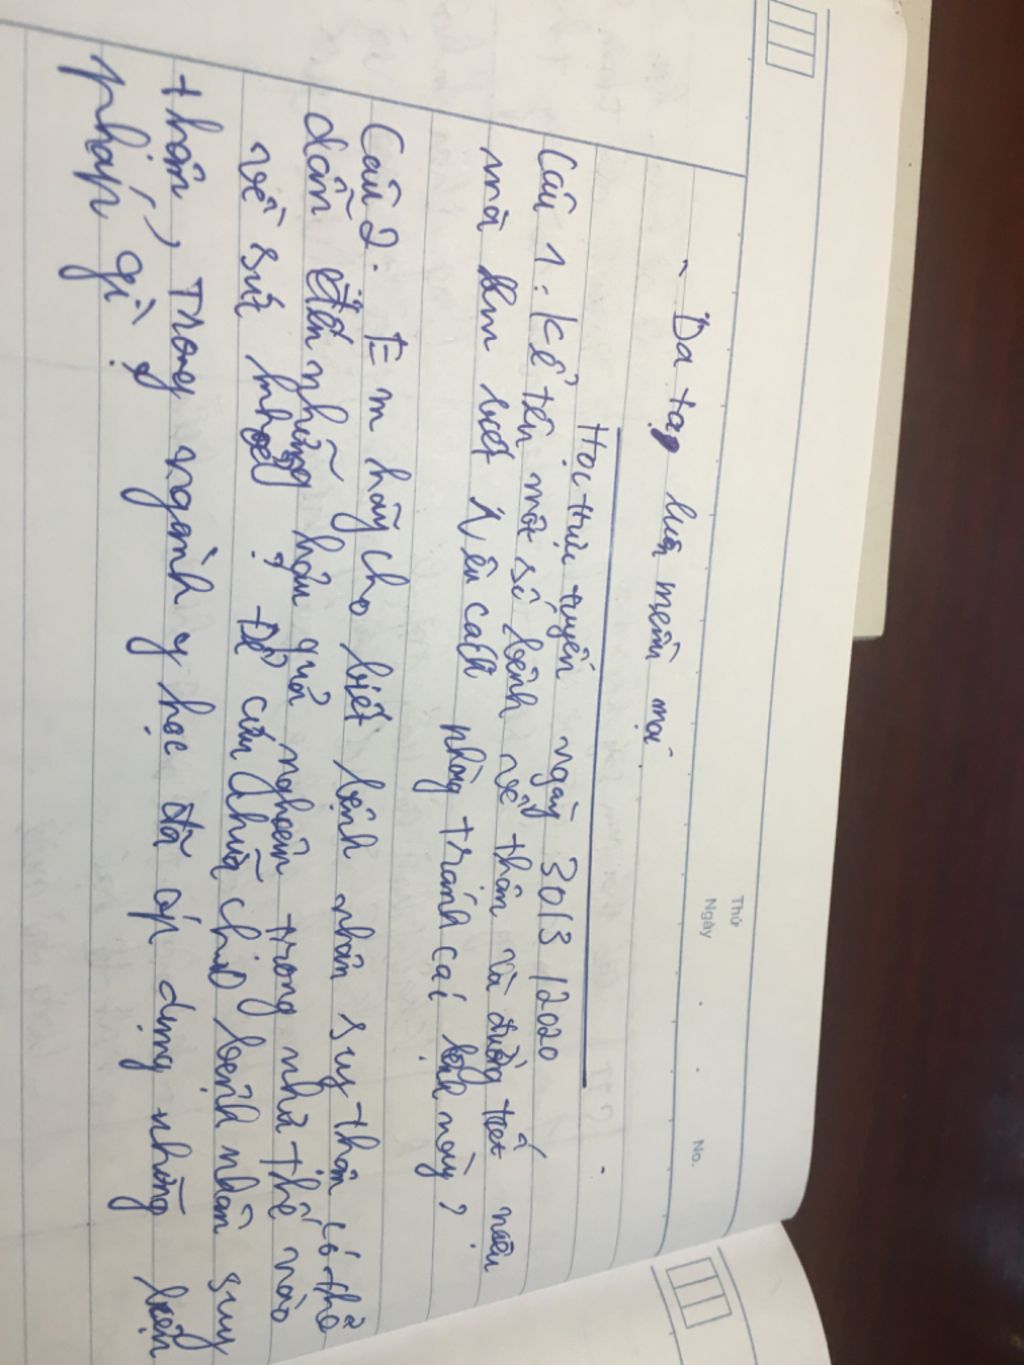 Thứ
Ngày
No.
- Da tạo luôn mềm mại
Học trực tuyến ngày 30/3/2020
Câu 1: Kể tên một số bệnh về thận và đường tiết niệu
mà em biết nêu cách phòng tránh các bệnh này?
Câu 2. Em hãy cho biết bệnh nhân suy thận có thể
dẫn đến những hậu quả nghiêm trọng như thế nào
về sức khoẻ? Để cứu chữa cho bệnh nhân suy
thận, Trong ngành y học đã áp dụng những biện
pháp gì?